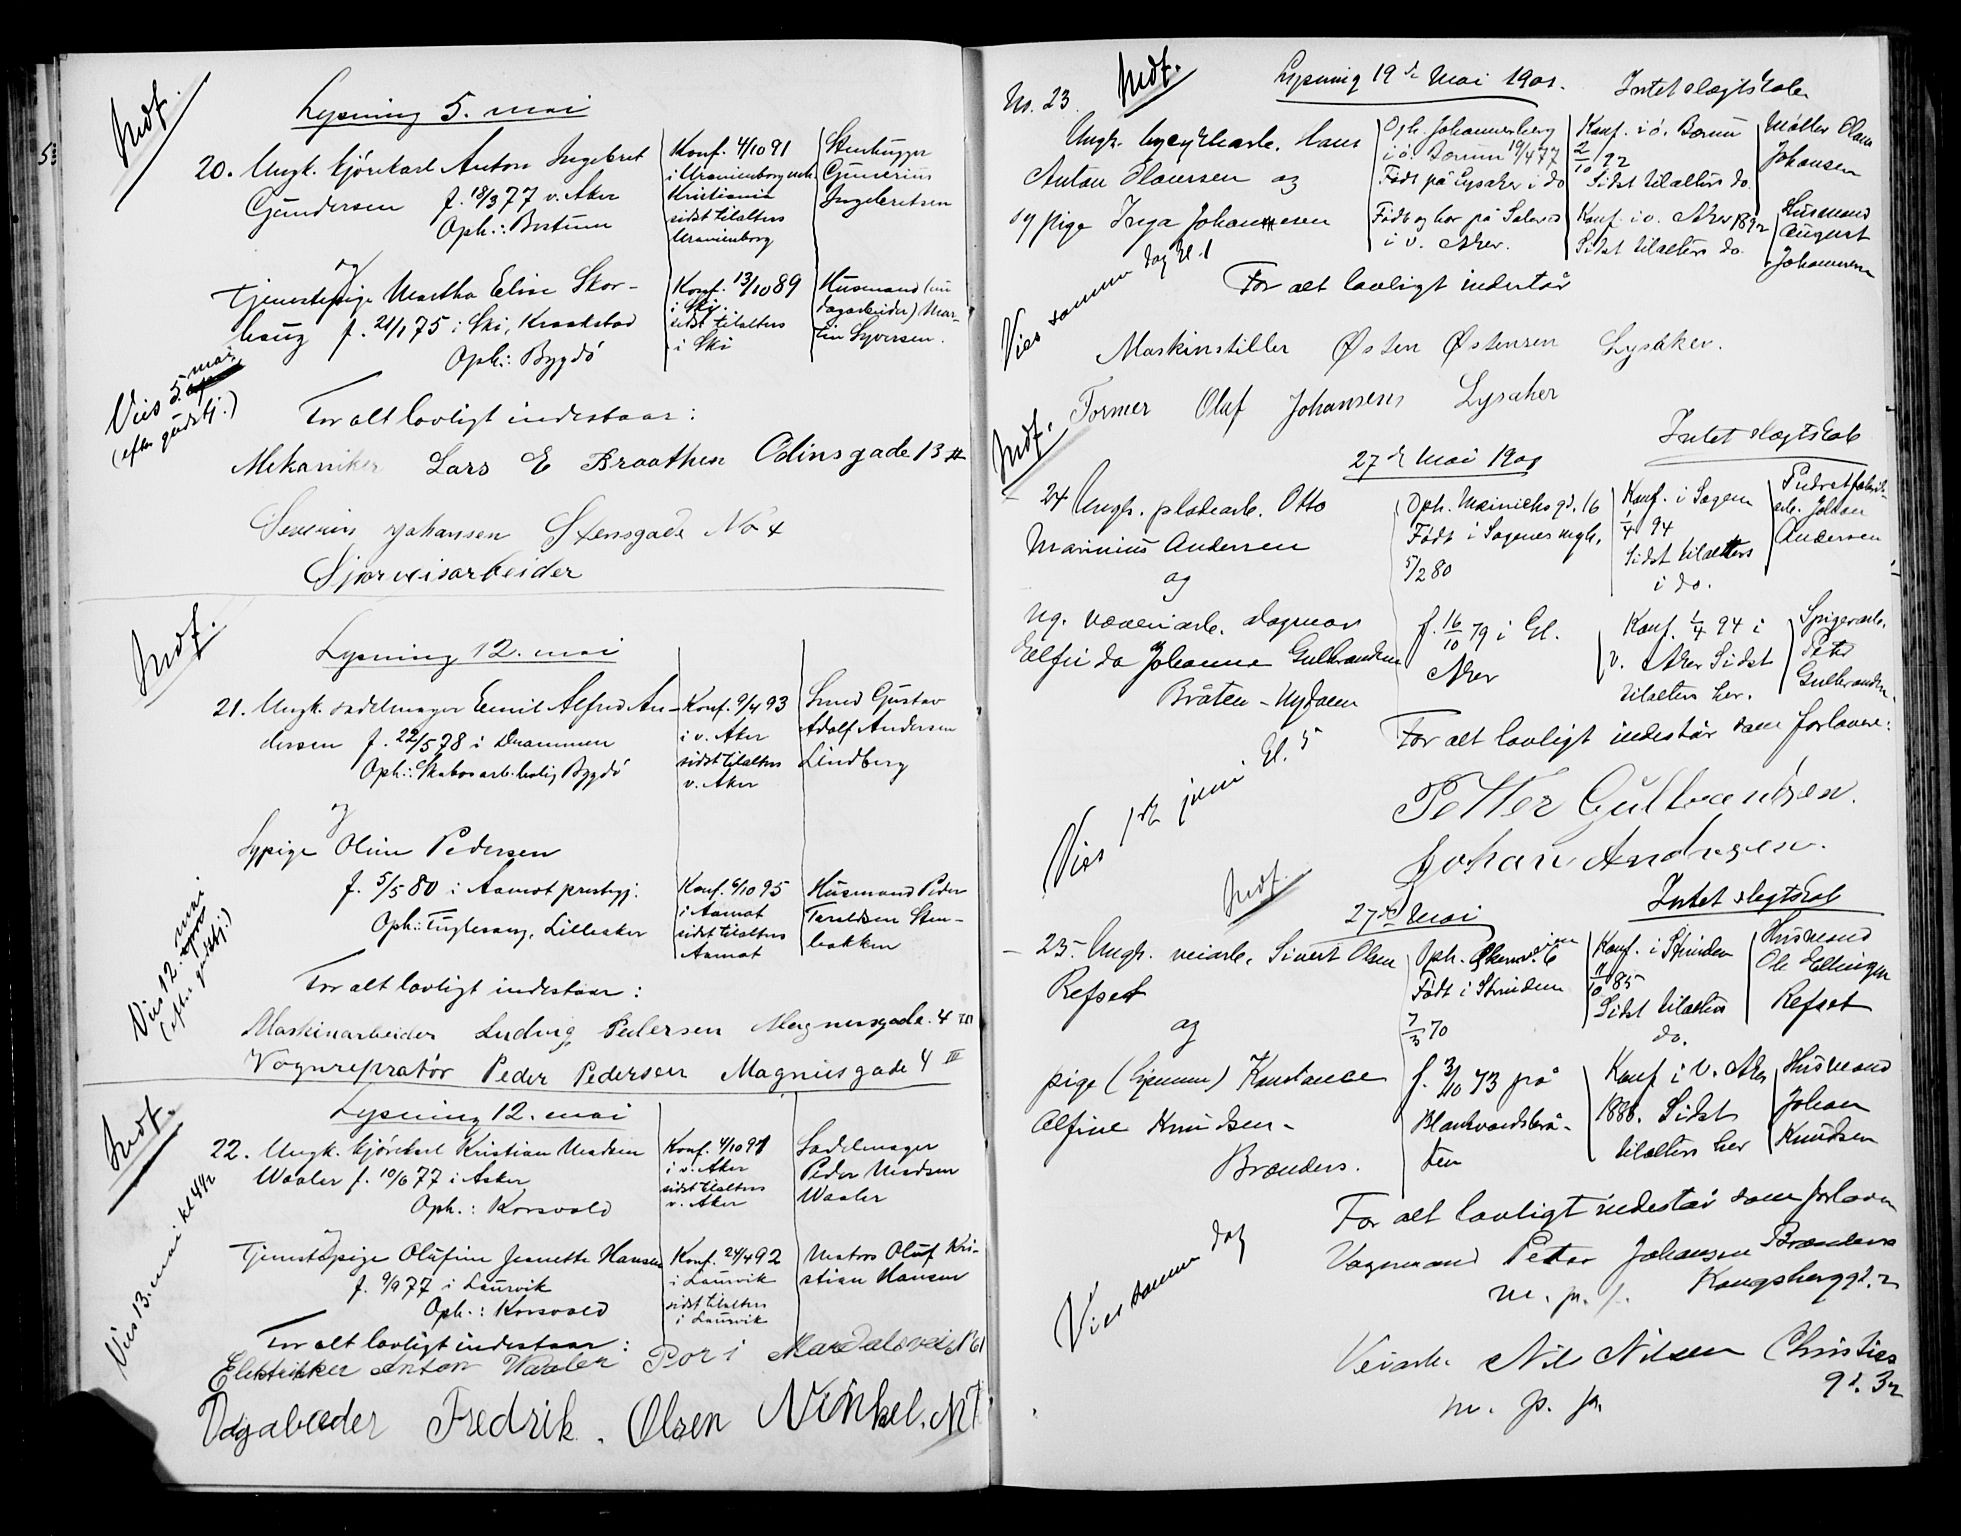 Indf.
Lysning 5. mai
20. Ungk. kjørekarl Anton Ingebret
Gundersen f. 18/3 77 v. Aker
Oph.: Bestum
Konf. 4/10 91
i Uranienborg
Kristiania
sidst tilalters
Uranienborg
Stenhugger
Gunerius
Ingebretsen
og
Tjenestepige Martha Elise Skor-
haug f. 21/1 75 i Ski, Kraakstad
Oph.: Bygdö
Konf. 13/10 89
i Ski
sidst tilalters
i Ski
Husmand (nu
dagarbeider) Mar-
tin Syversen.
Vies 5. mai
(efter gudstj.)
For alt lovligt indestaar:
Mekaniker Lars E Braathen Odinsgade 13 II
Severin Johansen Stensgade No 4
Sporveisarbeider
Indf.
Lysning 12. mai
21. Ungk. sadelmager Emil Alfred An-
dersen f. 22/5 78 i Drammen
Oph.: Skabos arb.bolig Bygdö
Konf. 9/4 93
i v. Aker
sidst tilalters
v. Aker
Smed Gustav
Adolf Andersen
Lindberg
og
Sypige Oline Pedersen
f. 5/5 80 i Aamot prestegj.
Oph.: Fuglesang, Lilleaker
Konf. 6/10 95
i Aamot
sidst tilalters
Aamot
Husmand Peder
Taraldsen Sten-
bakken
Vies 12. mai
(efter gudstj.)
For alt lovligt indestaar:
Maskinarbeider Ludvig Pedersen Magnusgade. 4 III
Vognrepratör Peder Pedersen Magnusgade 4 III
Indf.
Lysning 12. mai
22. Ungk. kjørekarl Kristian Madsen
Waaler f. 10/6 77 i Asker
Oph.: Korsvold
Konf. 4/10 91
i v. Aker
sidst tilalters
v. Aker
Sadelmager
Peder Madsen
Waaler
og
Tjenestepige Olufine Jeanette Hansen
f. 9/9 77 i Laurvik
Oph.: Korsvold
Konf. 24/4 92
i Laurvik
sidst tilalters
i Laurvik
Matros Oluf Kri-
stian Hansen
Vies 13. mai kl 4 1/2
For alt lovligt indestaar:
Elektriker Anton Waaler Mardalsvei N 61
Fredrik. Olsen
No. 23.
Indf.
Lysning 19de Mai 1901.
Intet slægtskab
Ungk. Hans
Anton Hansen og
Oph. Johannesberg
i ö. Bærum 19/4 77
Födt på Lysaker i do
Konf. i ö. Bærum
2/10 92
Sidst tilalters do.
Møller Olaus
Johansen
sypige Inga Johannesen
Födt og bor på
i v. Aker.
Konf. i v. Aker 1892
Sidst tilalters do.
Husmand
August
Johannesen
Vies samme dag kl. 1
For alt lovligt indestår
Maskinstiller Østen Østensen Lysaker.
Former Oluf Johansens Lysaker
Indf.
27de Mai 1901
Intet slægtskab
24 Ungk. pladearb. Otto
Marinius Andersen
og
Oph. Mainichsgd. 16
Födt i Sagenes mgh.
5/2 80
Konf. i Sagene
1/4 94
Sidst tilalters
i do.
arb. Johan
Andersen
ug. væveriarb. Dagmar
Elfrida Johanne Gulbrandsen
Bråten - Nydalen
f. 16/10 79 i V.
Aker
Konf. 1/4 94 i
v. Aker Sidst
tilalters her.
Spigerarb.
Peter
Gulbrandsen
Vies 1ste juni kl. 5
For alt lovligt indestår som forlovere:
Petter Gulbrandsen.
Johan Andresen.
Indf.
27de Mai
Intet slegtskab
25. Ungk. veiarb. Sivert Olsen
Refset
og
Oph. Akersveien 6
Födt i Strinden
7/3 70
Konf. i Strinden
11/10 85
Sidst tilalters
do.
Husmand
Ole Ellingsen
Refset
pige (hjemme) Konstance
Alfine Knudsen -
Brænderi.
f. 3/10 73 på
Blankvandsbrå-
ten
Konf i V. Aker
1888. Sidst
tilalters her
Husmand
Johan
Knudsen
Vies samme dag
For alt lovligt indestår som forlovere
Vognmand Peter Johansen Brænderi
m. p. p. Kongsberggd. 2
Veiarb. Nils Nilsen Christies
gd. 32
m. p. p.